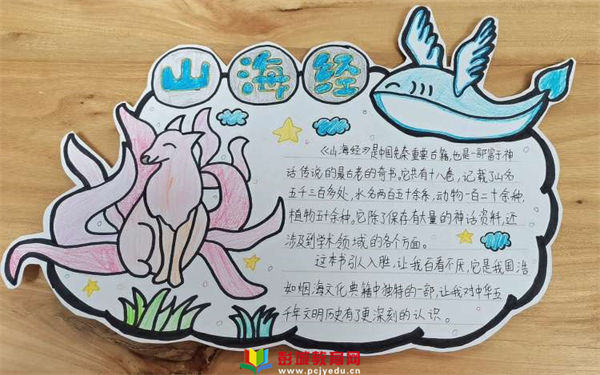 山海经
《山海经》是中国先秦重要古籍,也是一部富于神
话传说的最古老的奇书,它共有十八卷,记载了山名
五千三百多处,水名两百五十余条,动物一百二十余种,
植物五十余种,它除了保存有大量的神话资料,还
涉及到学术领域的各个方面。
这本书引人入胜,让我百看不厌,它是我国浩
如烟海文化典籍中独特的一部,让我对中华五
千年文明历史有了更深刻的认识。
彭城教育网
www.pcjyedu.cn